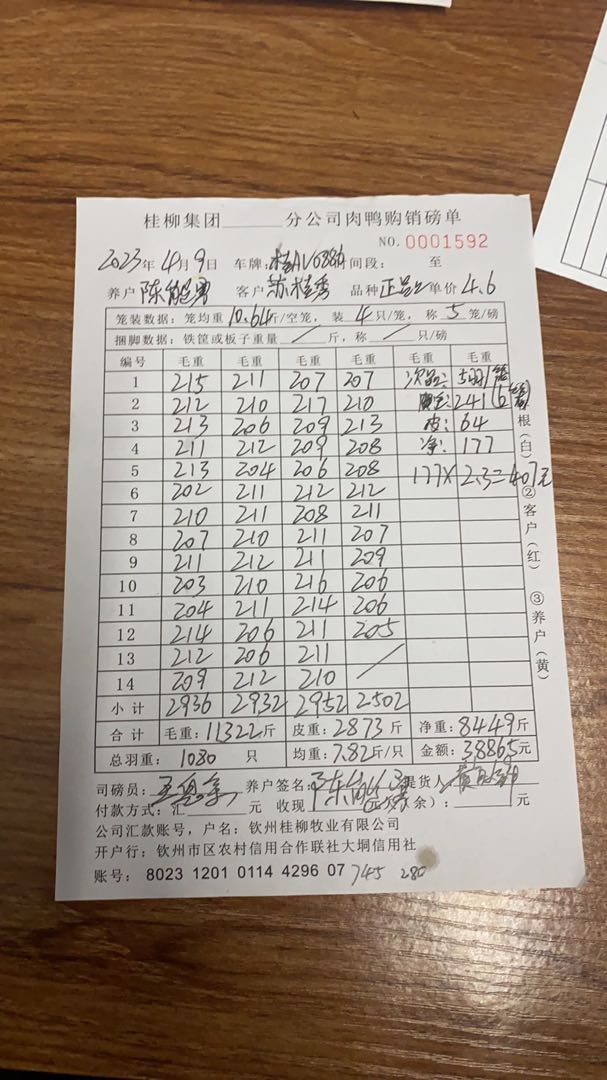 桂柳集团______分公司肉鸭购销磅单
NO. 0001592
2023年4月9日 车牌:桂AV0886 时间段: 至
养户 陈能勇 客户 苏桂秀 品种 正品 单价 4.6
笼装数据: 笼均重 10.64 斤/空笼, 装 4 只/笼, 称 5 笼/磅
捆脚数据: 铁筐或板子重量 / 斤, 称 / 只/磅
编号 毛重 毛重 毛重 毛重 毛重 毛重
1 215 211 207 207 次品:
2 212 210 217 210 241 (6
3 213 206 209 213 皮: 64
4 211 212 209 208 净: 177
5 213 204 206 208 177× 2.3=407元
6 202 211 212 212
7 210 211 208 211
8 207 210 211 207
9 211 212 211 209
10 203 210 216 206
11 204 211 214 206
12 214 206 211 205
13 212 206 211 /
14 209 212 210
小计 2936 2932 2952 2502
合计 毛重:11322斤 皮重:2873斤 净重:8449斤
总羽重: 1080 只 均重:7.82斤/只 金额:38865元
根(白)
②客户(红)
③养户(黄)
司磅员: 养户签名: 提货人
付款方式:汇 元 收现 余):
元
公司汇款账号, 户名: 钦州桂柳牧业有限公司
开户行: 钦州市区农村信用合作联社大垌信用社
账号: 8023 1201 0114 4296 07 745 280